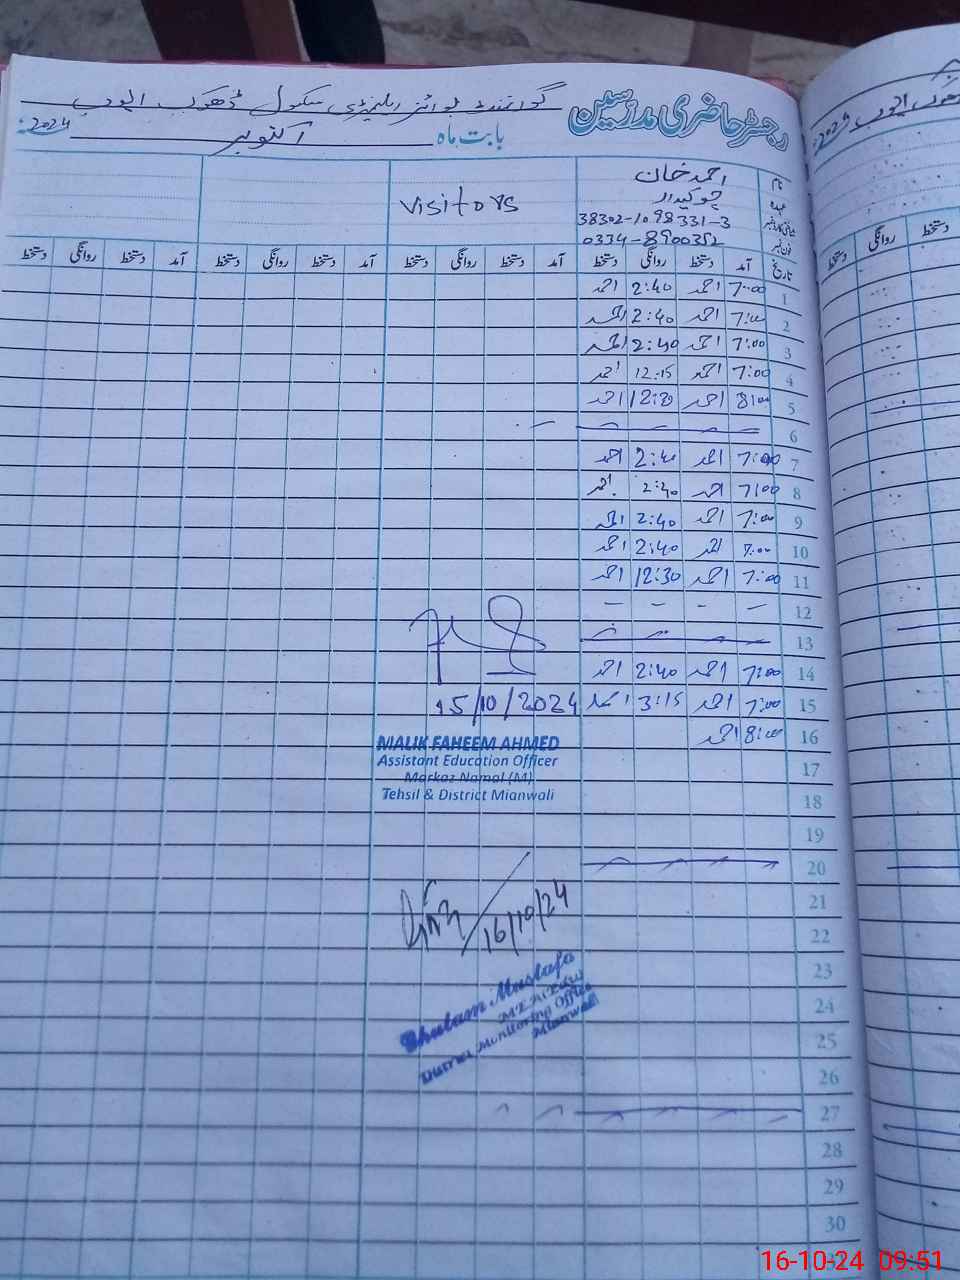 رجسٹر حاضری مدرسین گورنمنٹ بوائز ایلیمنٹری سکول ڈھوک ایوب
بابت ماہ اکتوبر 2024ء
نام احمد خان
عہدہ چوکیدار
Visitors
شناختی کارڈ نمبر 38302-1098331-3
فون نمبر 0334-8900352
تاریخ آمد دستخط روانگی دستخط آمد دستخط روانگی دستخط آمد دستخط روانگی دستخط آمد دستخط روانگی دستخط
1 7:00 احمد 2:40 احمد
2 7:00 احمد 2:40 احمد
3 7:00 احمد 2:40 احمد
4 7:00 احمد 12:15 احمد
5 8:00 احمد 12:30 احمد
6
7 7:00 احمد 2:40 احمد
8 7:00 احمد 2:40 احمد
9 7:00 احمد 2:40 احمد
10 7:00 احمد 2:40 احمد
11 7:00 احمد 12:30 احمد
12 - - - -
13
14 7:00 احمد 2:40 احمد
15 7:00 احمد 3:15 احمد 15/10/2024
16 8:00 احمد
MALIK FAHEEM AHMED
Assistant Education Officer
Markaz Namal (M)
Tehsil & District Mianwali
17
18
19
20
21
22
16/10/24
23
24
25
26
Ghulam Mustafa
District Monitoring Office
Mianwali
27
28
29
30
دستخط روانگی دستخط
16-10-24 09:51